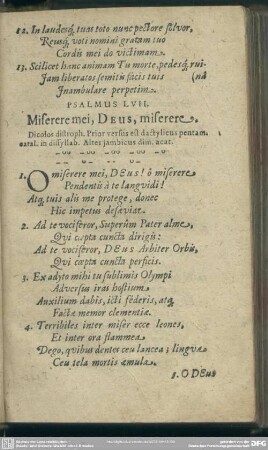 12. In laudesq́, tum toto nunc pectore solvor,
Reusq́, voti nomini gratam tuo
Cordis mei do victimam.
13. Scilicet hanc animam Tu morte, pedesq́, rui-
Jam liberatos semitû facis tuis (nâ
Inambulare perpetim.
PSALMUS LVII.
Miserere mei, DEUS, miserere.
Dicolor distroph. Prior versus est dactylicus pentam.
catal. in dissyllab. Alter jambicus dim. acat.
1. O miserere mei, DEus! ô miserere
Pendentis à te langvidi!
Atq́, tuis alis me protege, donec
Hic impetus desæviat.
2. Ad te vociferor, Superûm Pater alme,
Qvi cœpta cuncta dirigis:
Ad te vociferor, DEus Arbiter Orbis,
Qvi cœpta cuncta perficis.
3. Ex adyto mihi tu sublimis Olympi
Adversus iras hostium
Auxilium dabis, icti fœderis, atq́,
Factæ memor clementiæ.
4. Terribiles inter miser ecce leones,
Et inter ora flammea
Dego, qvibus dentes ceu lancea; lingvæ
Ceu tela mortis æmula.
5. O DEus